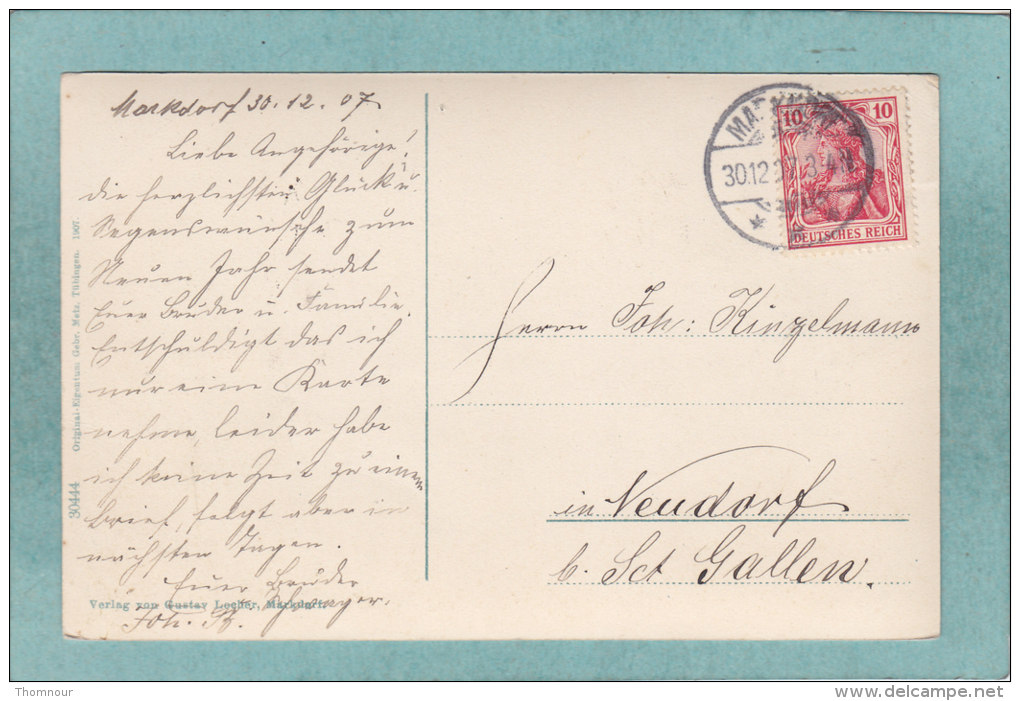 Markdorf 30.12.07.
Liebe Angehörige!
die herzlichsten Glück u.
Segenswünsche zum
Neuen Jahr sendet
Euer Bruder u. Familie.
Entschuldigt das ich
nur eine Karte
nehme, leider habe
ich keine Zeit zu einem
Brief, folgt aber in
nächsten Tagen.
Euer Bruder
u. Schwager.
Joh. B.
30444 Original-Eigentum Gebr. Metz, Tübingen. 1907.
Verlag von Gustav Locher, Markdorf.
30.12.07.3-4N
10 10
DEUTSCHES REICH
Herrn Joh: Kinzelmann
in Neudorf
b. Sct Gallen.
Thomnour
delcampe.net